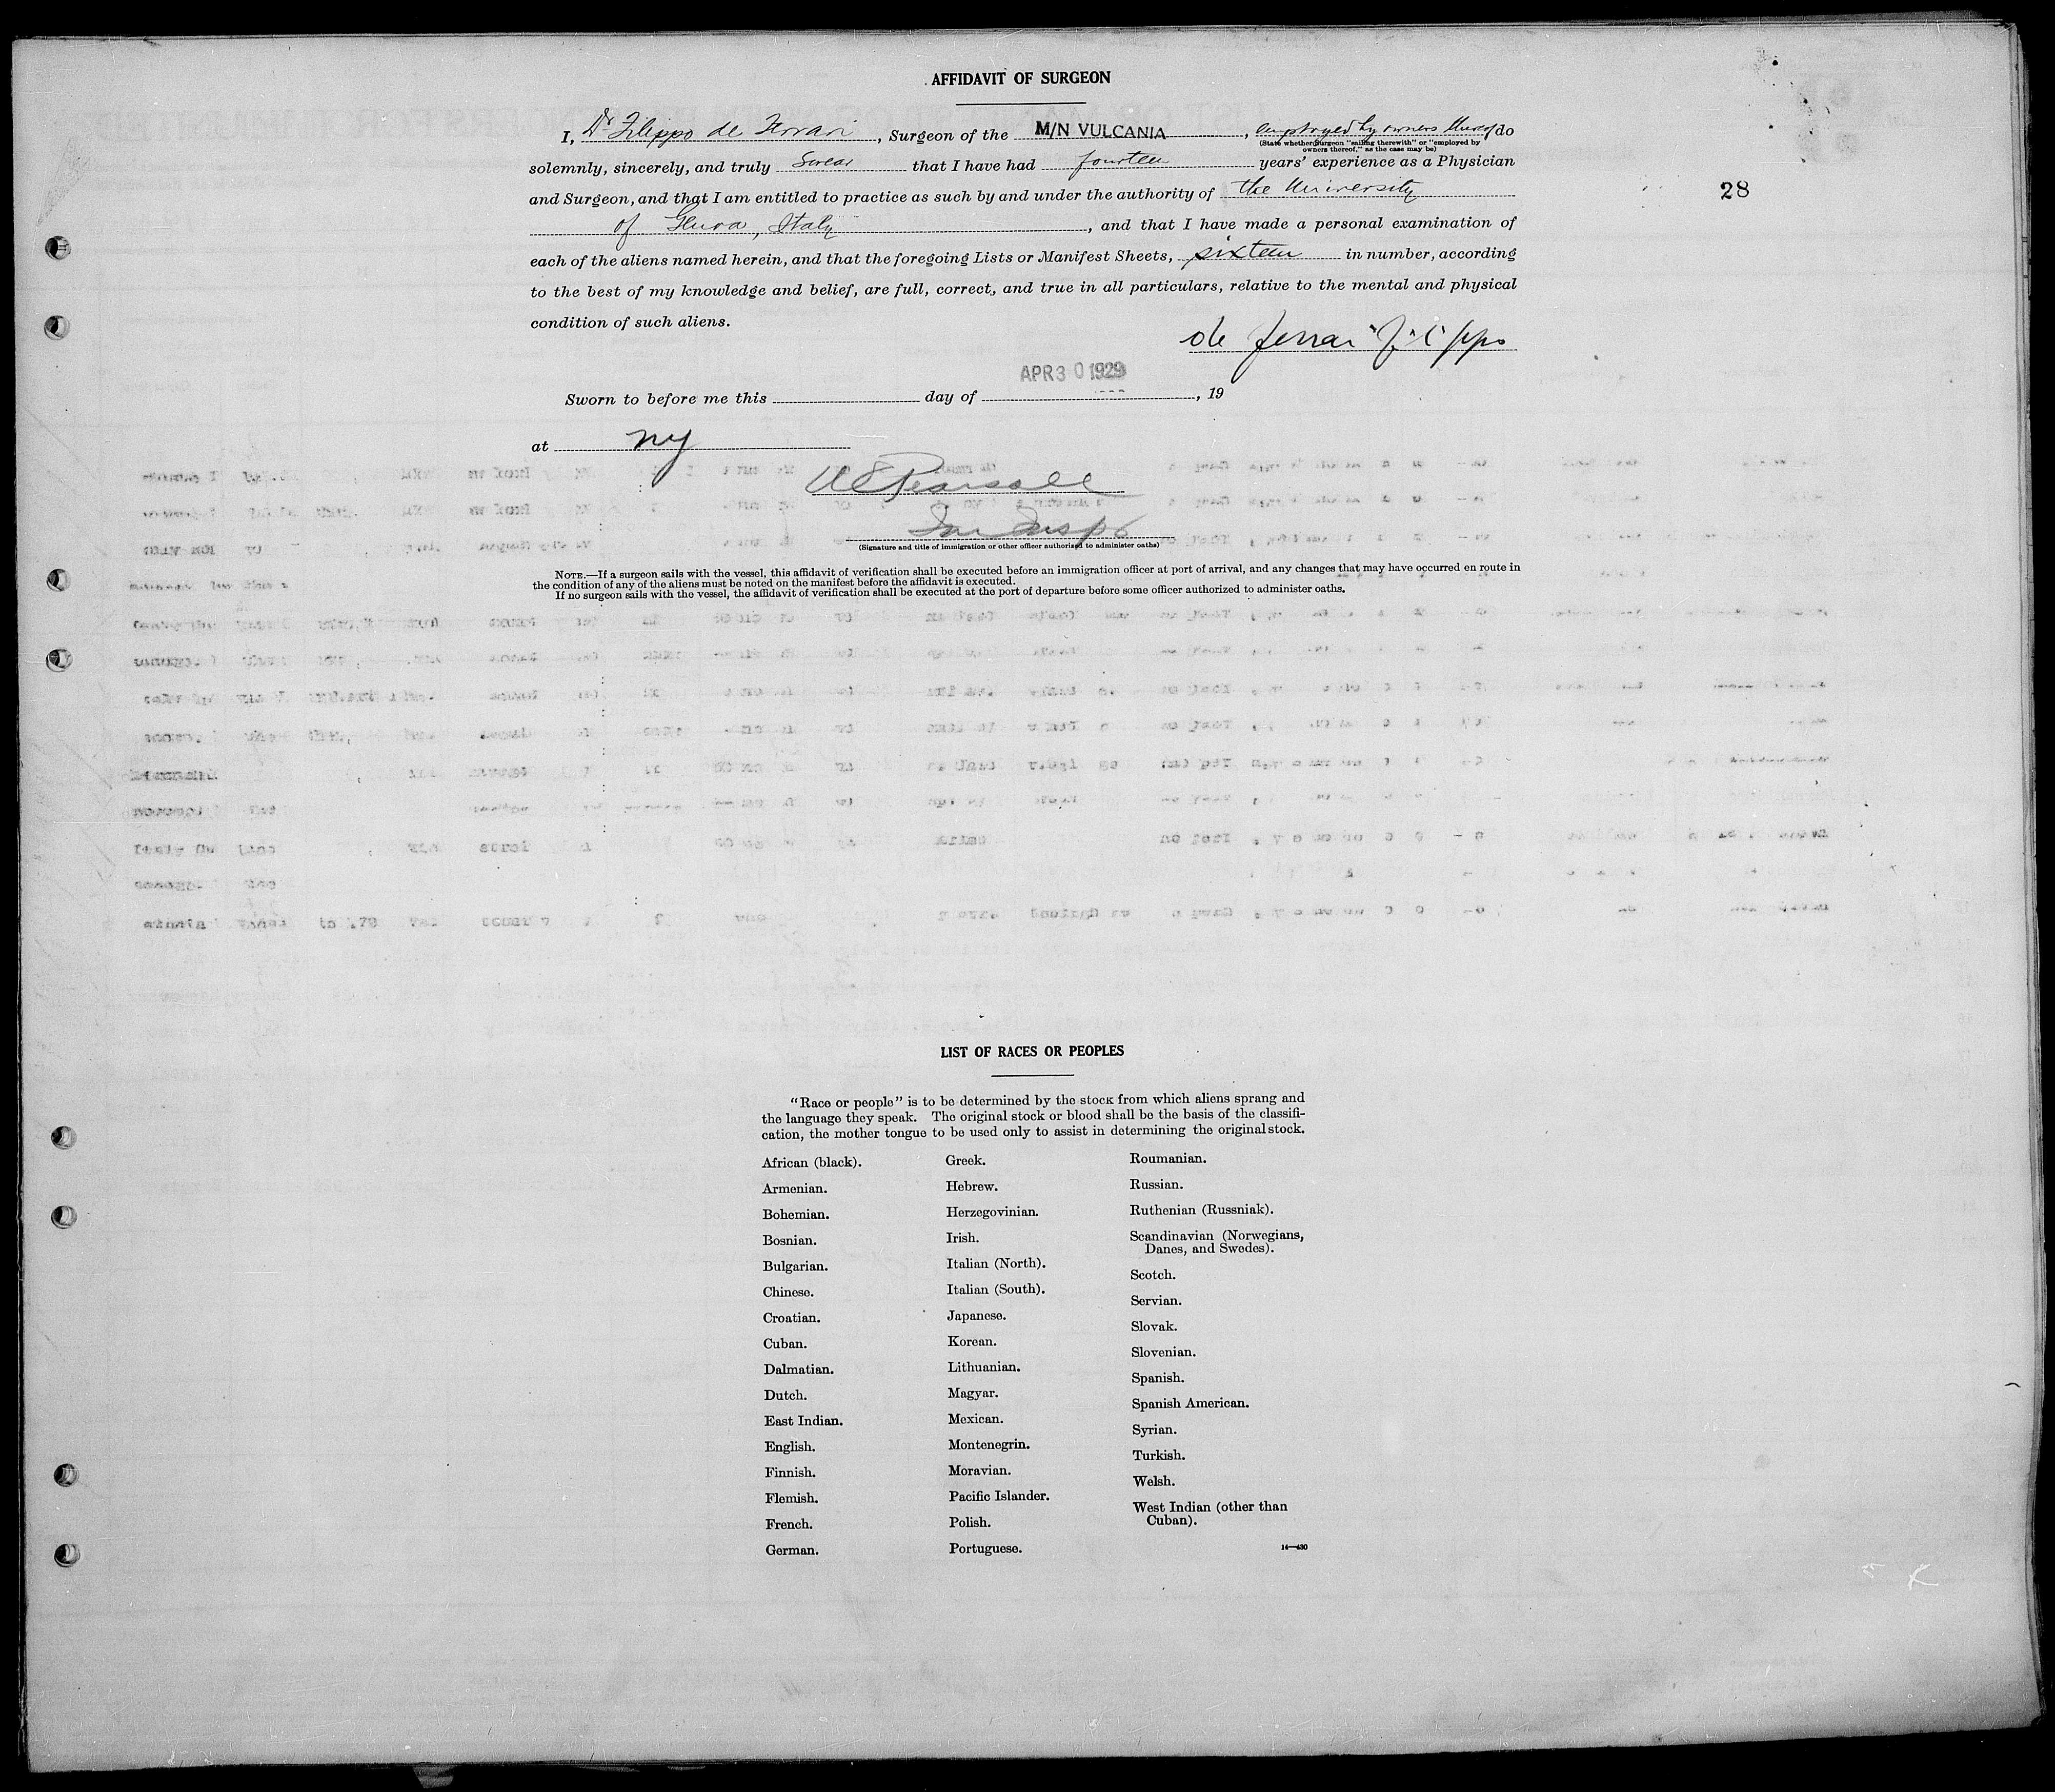 AFFIDAVIT OF SURGEON
I, Dr Filippo de Ferrari, Surgeon of the M/N VULCANIA, employed by owners thereof do
(State whether surgeon "sailing therewith" or "employed by
owners thereof," as the case may be)
solemnly, sincerely, and truly swear that I have had fourteen years' experience as a Physician
and Surgeon, and that I am entitled to practice as such by and under the authority of the University
28
of Genoa, Italy, and that I have made a personal examination of
each of the aliens named herein, and that the foregoing Lists or Manifest Sheets, sixteen in number, according
to the best of my knowledge and belief, are full, correct, and true in all particulars, relative to the mental and physical
condition of such aliens.
de Ferrari Filippo
APR 30 1929
Sworn to before me this day of , 19
at NY
Pearsall
Imm Insp
(Signature and title of immigration or other officer authorized to administer oaths)
NOTE.—If a surgeon sails with the vessel, this affidavit of verification shall be executed before an immigration officer at port of arrival, and any changes that may have occurred en route in
the condition of any of the aliens must be noted on the manifest before the affidavit is executed.
If no surgeon sails with the vessel, the affidavit of verification shall be executed at the port of departure before some officer authorized to administer oaths.
LIST OF RACES OR PEOPLES
"Race or people" is to be determined by the stock from which aliens sprang and
the language they speak. The original stock or blood shall be the basis of the classifi-
cation, the mother tongue to be used only to assist in determining the original stock.
African (black).
Armenian.
Bohemian.
Bosnian.
Bulgarian.
Chinese.
Croatian.
Cuban.
Dalmatian.
Dutch.
East Indian.
English.
Finnish.
Flemish.
French.
German.
Greek.
Hebrew.
Herzegovinian.
Irish.
Italian (North).
Italian (South).
Japanese.
Korean.
Lithuanian.
Magyar.
Mexican.
Montenegrin.
Moravian.
Pacific Islander.
Polish.
Portuguese.
Roumanian.
Russian.
Ruthenian (Russniak).
Scandinavian (Norwegians,
Danes, and Swedes).
Scotch.
Servian.
Slovak.
Slovenian.
Spanish.
Spanish American.
Syrian.
Turkish.
Welsh.
West Indian (other than
Cuban).
14—430